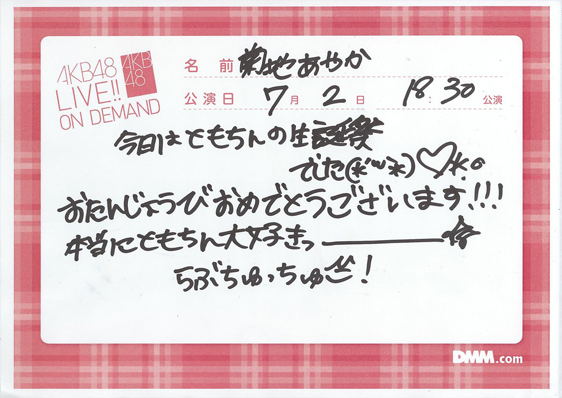 AKB48
LIVE!!
ON DEMAND
AKB
48
名 前 菊地あやか
公演日 7月 2日 18:30 公演
今日はともちんの生誕祭
でした(*´~`*)♡
おたんじょうびおめでとうございます!!!
本当にともちん大好きっ―――☆
らぶちゅっちゅ!
DMM.com